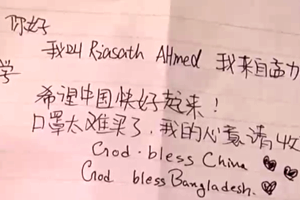 你好
我叫 Riasath AHmed 我来自孟力
学
希望中国快好起来！
口罩太难买了，我的心意请收
God. bless China
God bless Bangladesh.